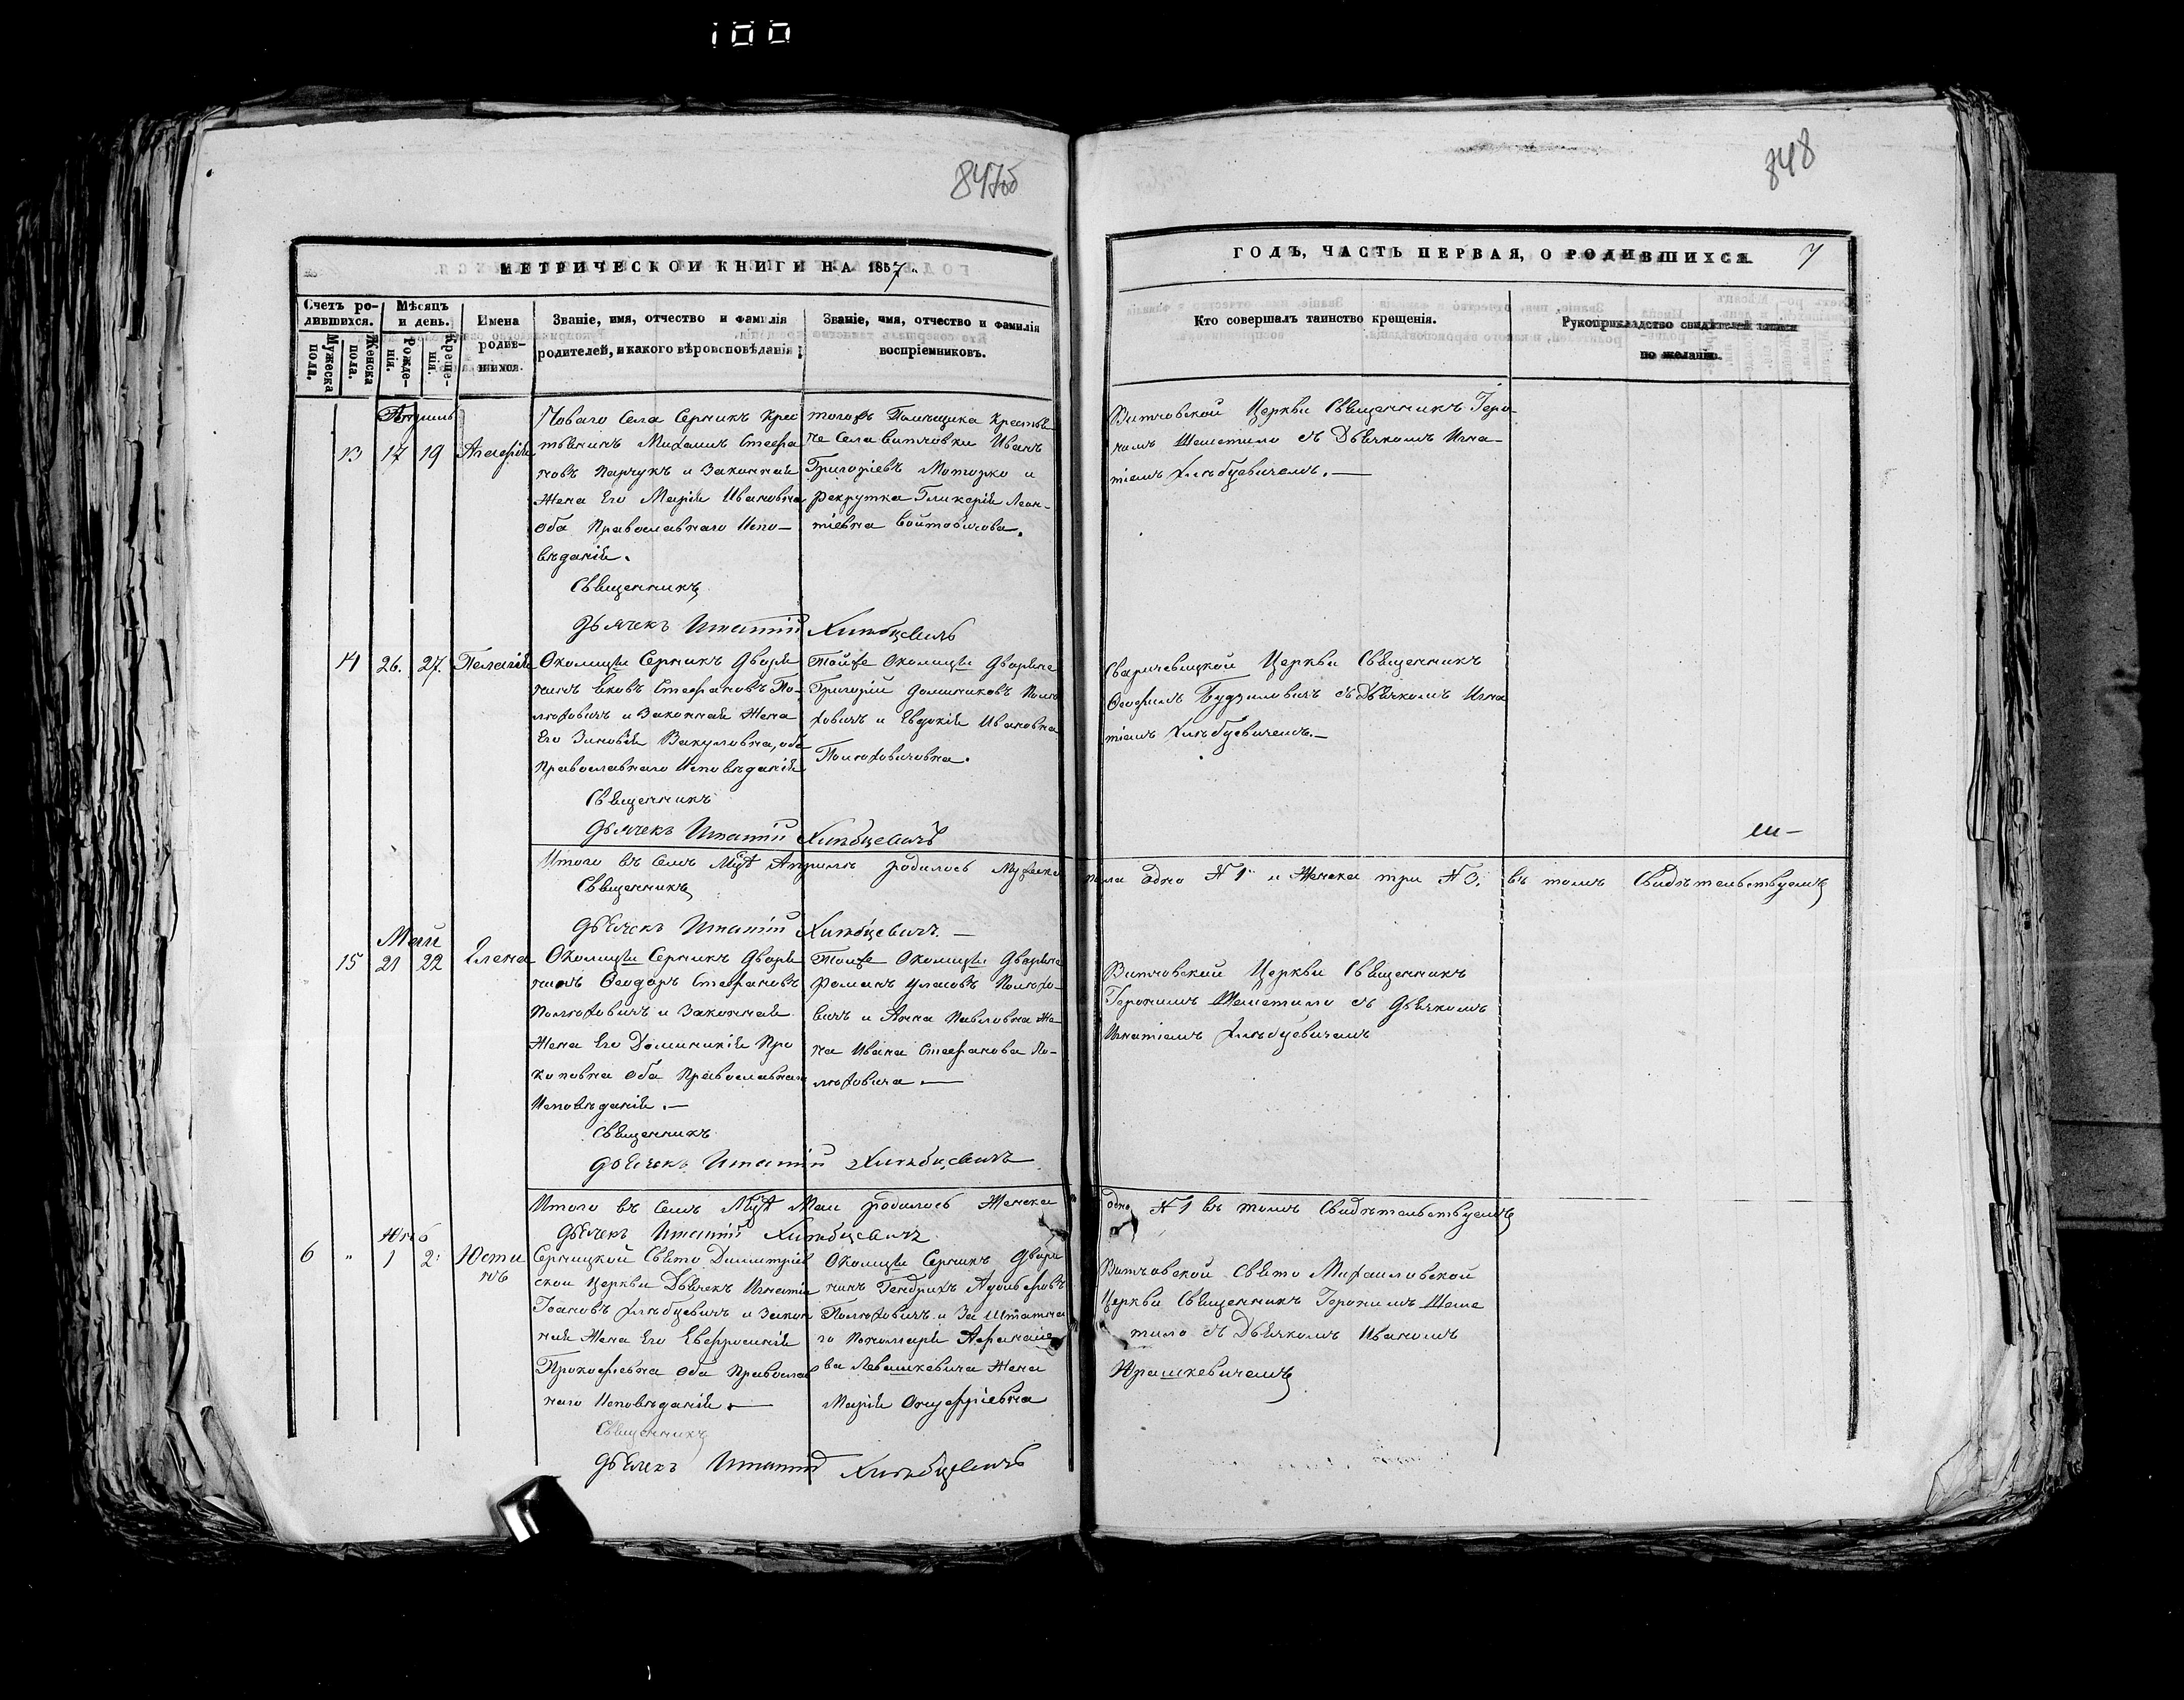 100
847об
848
МЕТРИЧЕСКОЙ КНИГИ НА 1857
ГОДЪ, ЧАСТЬ ПЕРВАЯ, О РОДИВШИХСЯ.
7
Счетъ ро-
дившихся.
Мѣсяцъ
и день.
Имена
родив-
шихся.
Мужеска
пола.
Женска
пола.
Рожде-
нія.
Креще-
нія.
Званіе, имя, отчество и фамилія
родителей, и какого вѣроисповѣданія
Званіе, имя, отчество и фамилія
воспріемниковъ.
Кто совершалъ таинство крещенія.
Рукоприкладство свидѣтелей записи
по желанію.
Апрель
13 17 19
Тогова Села Серникъ Крес
тьянинъ Михаилъ Стефа
новъ Парчукъ и Законная
Жена Его Марія Ивановна
Оба Православнаго Испо-
вѣданія.
Священникъ
Дьячекъ Игнатій Хлѣбцевичъ
тогожъ Помѣщика Крестья
не Села Витчовки Иванъ
Григоріевъ Моторко и
Рекрутка Гликерія Леон-
тіевна Войтовичова.
Витчовской Церкви Священникъ Геро-
нимъ Шеметило съ Дьячкомъ Игна-
тіемъ Хлѣбцевичемъ.
14 26. 27. Пелагія
Околицы Серникъ Дворя
нинъ Яковъ Стефановъ По-
люховичъ и Законная Жена
Его Зиновія Вакуловна, оба
Православнаго Исповѣданія
Священникъ
Дьячекъ Игнатій Хлѣбцевичъ
Тойже Околицы Дворяне
Григорій Доминиковъ Полю
ховичъ и Евдокія Ивановна
Полюховичовна.
Сваричевицкой Церкви Священникъ
Феофилъ Будзиловичъ съ Дьячкомъ Игна
тіемъ Хлѣбцевичемъ.
Итого въ семъ Мцѣ Априлѣ родилось Мужеска пола одно N 1 и Женска три N 3. въ томъ Свидѣтельствуемъ
Священникъ
Дьячекъ Игнатій Хлѣбцевичъ.
Май
15 21 22 Елена
Околицы Серникъ Дворя
нинъ Феодоръ Стефановъ
Полюховичъ и Законная
Жена Его Доминикія Про
коповна Оба Православнаго
Исповѣданія.
Священникъ
Дьячекъ Игнатій Хлѣбцевичъ
Тойже Околицы Дворяне
Романъ Уласовъ Полюхо-
вичъ и Анна Павловна Же-
на Ивана Стефанова По-
люховича.
Витчовской Церкви Священникъ
Геронимъ Шеметило съ Дьячкомъ
Игнатіемъ Хлѣбцевичемъ
Итого въ семъ Мцѣ Маи родилось Женска одно N 1 въ томъ Свидѣтельствуемъ
Дьячекъ Игнатій Хлѣбцевичъ
6 " 1 2 Юсти
нъ
Серницкой Свято Димитріев
ской Церкви Дьячекъ Игнатій
Іоановъ Хлѣбцевичъ и Закон
ная Жена Его Евфросинія
Прокофіевна Оба Православ
наго Исповѣданія.
Священникъ
Дьячекъ Игнатій Хлѣбцевичъ
Околицы Серникъ Дворя
нинъ Гендрихъ Адольфовъ
Полюховичъ и Заштатна
го Пономаря Афанасіе
ва Левашкевича Жена
Марія Онуфріевна
Витчовской Свято Михаиловской
Церкви Священникъ Геронимъ Шеме
тило съ Дьячкомъ Иваномъ
Юрашкевичемъ